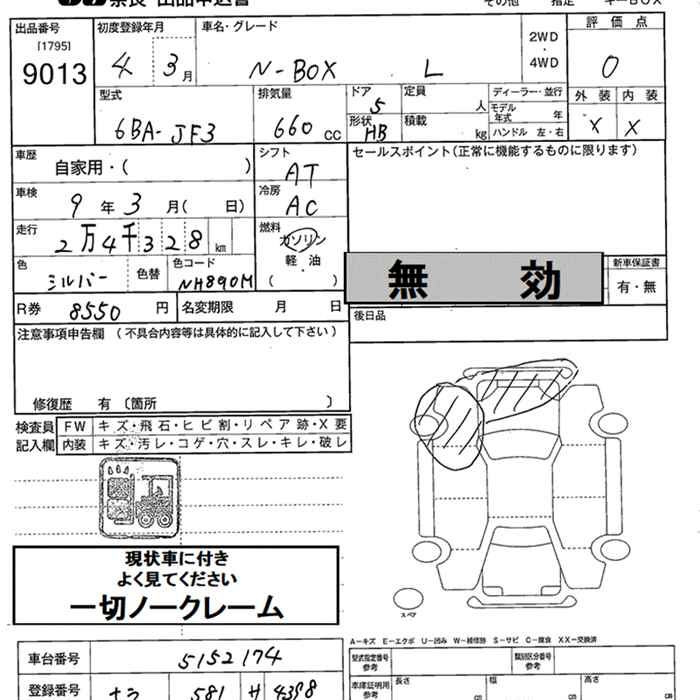 奈良 出品申込書
その他 指定 キーBOX
出品番号 初度登録年月 車名・グレード 2WD・4WD 評価点
[1795]
9013 4 3月 N-BOX L 0
型式 排気量 ドア 定員 ディーラー・並行 外装 内装
5 人 モデル年式 年
6BA-JF3 660 cc 形状 HB 積載 kg ハンドル 左・右 X X
車歴 自家用・( ) シフト AT セールスポイント(正常に機能するものに限ります)
車検 9年3月( 日) 冷房 AC
走行 2万4千328km 燃料 ガソリン
軽・油
( )
色 シルバー 色替 色コード NH890M
無効 新車保証書
有・無
R券 8550円 名変期限 月 日 後日品
注意事項申告欄 (不具合内容等は具体的に記入して下さい)
修復歴 有 〔箇所 〕
検査員 FW キズ・飛石・ヒビ割・リペア跡・X要
記入欄 内装 キズ・汚レ・コゲ・穴・スレ・キレ・破レ
現状車に付き
よく見てください
一切ノークレーム
スペア
A-キズ E-エクボ U-凹み W-補修跡 S-サビ C-腐食 XX-交換済
車台番号 5152174 型式指定番号 参考 類別区分番号 参考
登録番号 ナラ 581 H 4398 車庫証明用 参考 長さ cm 幅 cm 高さ cm